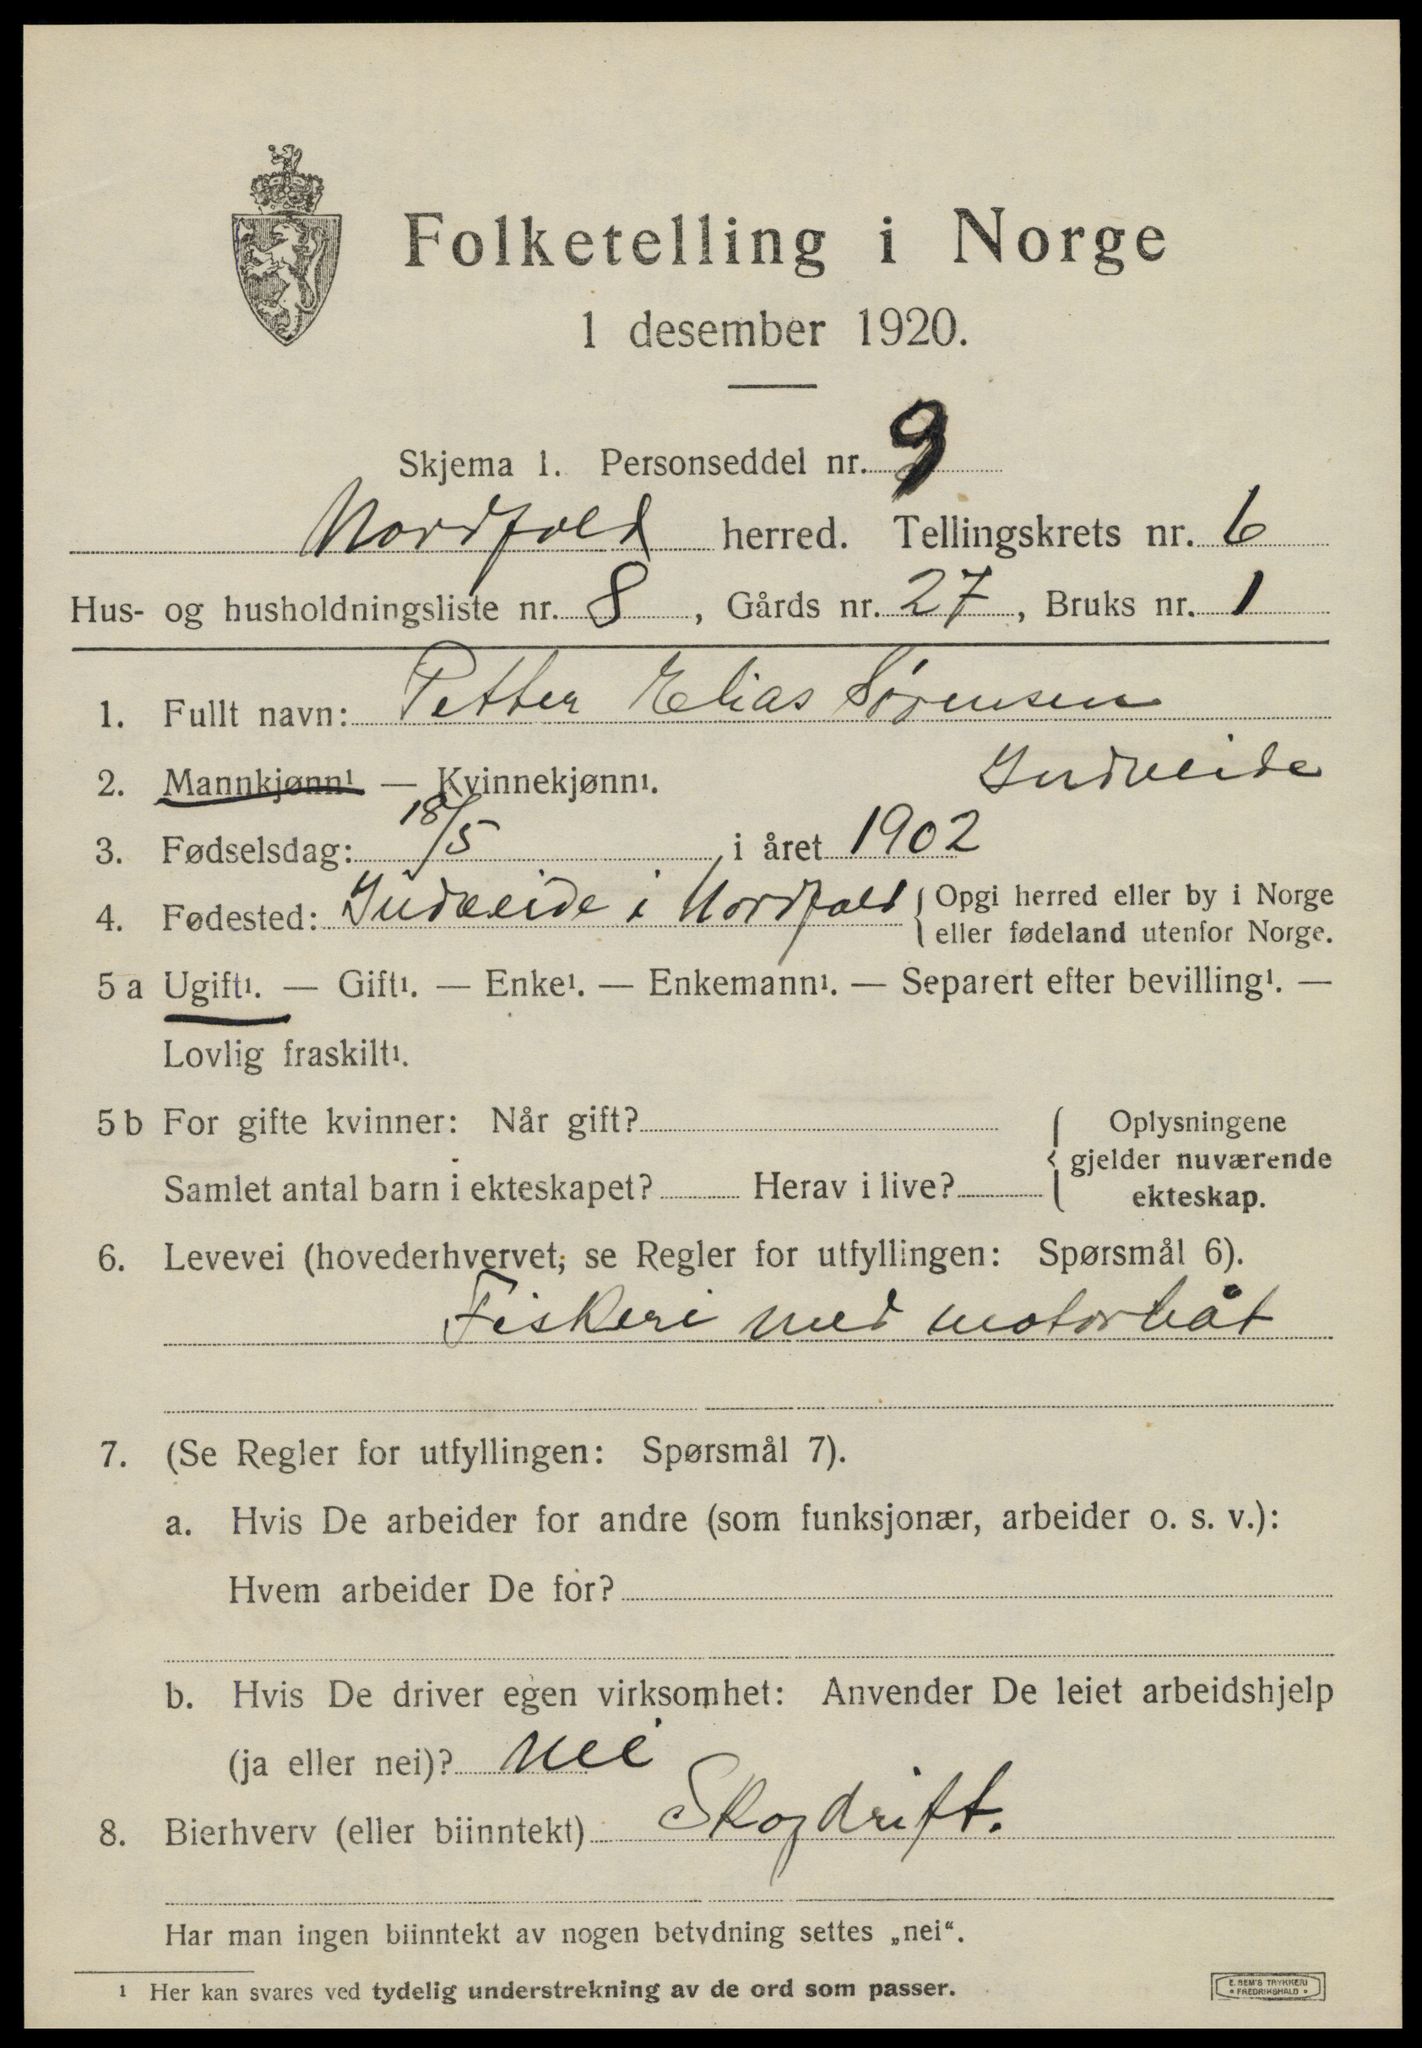 Folketelling i Norge
1 desember 1920.
Skjema 1. Personseddel nr. 9
Nordfold herred. Tellingskrets nr. 6
Hus- og husholdningsliste nr. 8, Gårds nr. 27, Bruks nr. 1
1. Fullt navn: Petter Elias Sørensen
Indveide
2. Mannkjønn¹ — Kvinnekjønn¹.
3. Fødselsdag: 18/5, i året 1902
4. Fødested: Indveide i Nordfold { Opgi herred eller by i Norge
eller fødeland utenfor Norge.
5 a Ugift¹. — Gift¹. — Enke¹. — Enkemann¹. — Separert efter bevilling¹. —
Lovlig fraskilt¹.
5 b For gifte kvinner: Når gift? { Oplysningene
gjelder nuværende
Samlet antal barn i ekteskapet? Herav i live? ekteskap.
6. Levevei (hovederhvervet; se Regler for utfyllingen: Spørsmål 6).
Fiskeri med motorbåt
7. (Se Regler for utfyllingen: Spørsmål 7).
a. Hvis De arbeider for andre (som funksjonær, arbeider o. s. v.):
Hvem arbeider De for?
b. Hvis De driver egen virksomhet: Anvender De leiet arbeidshjelp
(ja eller nei)? nei
8. Bierhverv (eller biinntekt) Skogdrift.
Har man ingen biinntekt av nogen betydning settes „nei“.
¹ Her kan svares ved tydelig understrekning av de ord som passer.
E. SEM'S TRYKKERI
• FREDRIKSHALD •